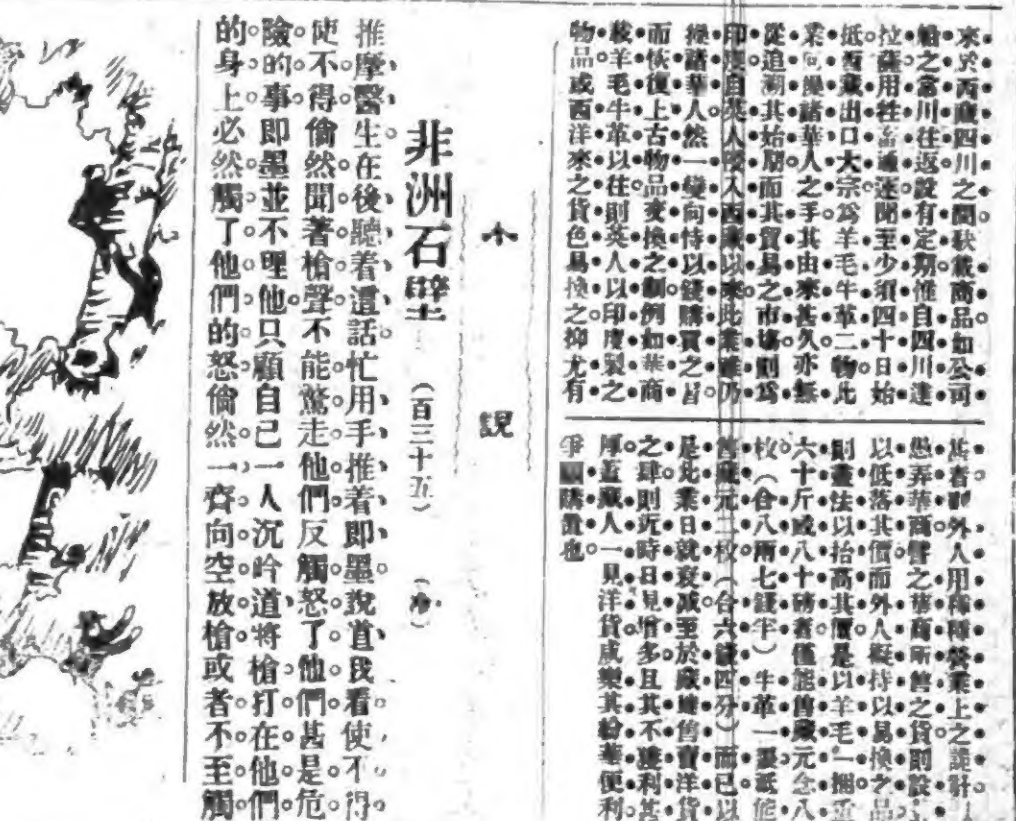 來於西藏四川之間秋載商品如公司
船之當川往返設有定期惟自四川達
拉薩用牲畜遞送間至少須四十日始
抵西藏出口大宗爲羊毛牛革二物此
業向操諸華人之手其由來甚久亦無
從追溯其始屬而其貿易之市場則爲
印度自英人侵入西藏以來此業雖乃
操諸華人然一變向恃以錢購買之習
而恢復上古物品變換之例如華商
裝羊毛牛革以往則英人以印度製之
物品或西洋來之貨色易換之抑尤有
甚者外人用種種營業上之詭計
愚弄華商譬之華商所售之貨則設
以低落其價而外人擬持以易換之品
則盡法以抬高其價是以羊毛一捆重
六十斤或八十磅者僅能售藏元念八
枚（合八兩七錢半）牛革一張祇能
售藏元二枚（合六錢四分）而已以
是此業日就衰減至於廠售賣洋貨
之肆則近時日見增多且其不獲利甚
厚蓋藏人一見洋貨咸樂其紛華便利
爭購也
小說
非洲石壁（百三十五）（冷）
推摩醫生在後聽着這話忙用手推着即墨說道我看使不得
使不得倘然聞著槍聲不能驚走他們反觸怒了他們甚是危
險的事即墨並不理他只顧自己一人沉吟道將槍打在他們
的身上必然觸了他們的怒倘然一齊向空放槍或者不至觸